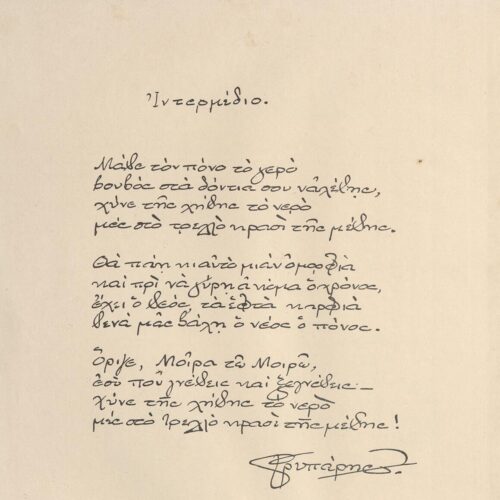 Ἰντερμέδιο.
Μάθε τὸν πόνο τὸ γερὸ
βουβὸς στὰ δόντια σου ν' ἀλέθῃς,
χύνε τῆς λήθης τὸ νερὸ
μὲς στὸ τρελλὸ κρασὶ τῆς μέθης.
Θὰ πάῃ κι αὐτὸ μιὰν ὀμορφιὰ
καὶ πρὶ νὰ γύρῃ ἀκόμα ὁ χρόνος,
ἔχει ὁ θεός, τὰ ἑφτὰ καρφιὰ
θενὰ μᾶς βάλῃ ὁ νέος ὁ πόνος.
Ὅριζε, Μοῖρα τῶ Μοιρῶ,
ἐσὺ ποῦ γνέθεις καὶ ξεγνέθεις —
χύνε τῆς λήθης τὸ νερὸ
μὲς στὸ τρελλὸ κρασὶ τῆς μέθης!
Γρυπάρης.